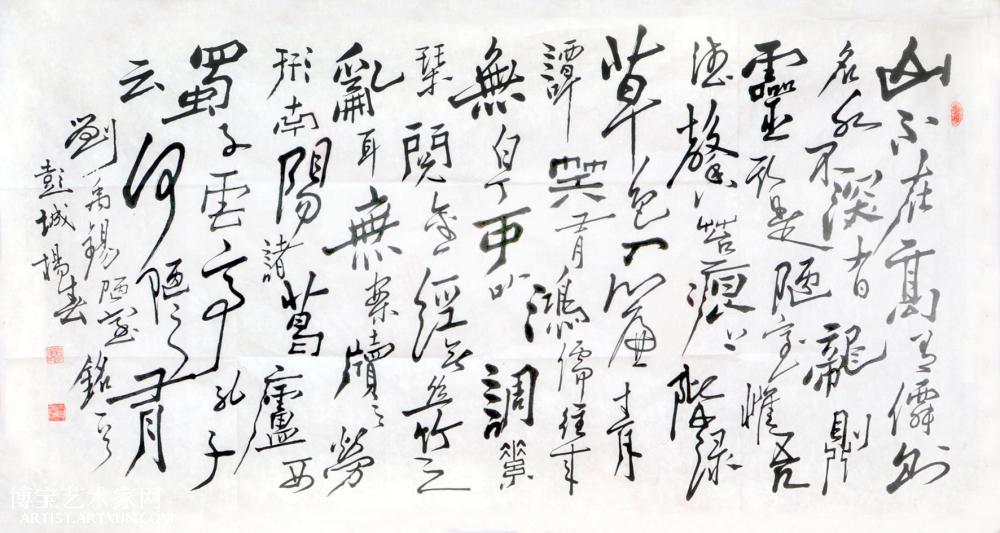 山不在高有僊則
名水不深有龍則
靈斯是陋室惟吾
德馨苔痕上階綠
草色入簾青
譚笑有鴻儒往來
無白丁可以調素
琴閱金經無絲竹之
亂耳無案牘之勞
形南陽諸葛廬西
蜀子雲亭孔子
云何陋之有
劉禹錫陋室銘
彭城楊春
博宝艺术家网
ARTIST.ARTXUN.COM